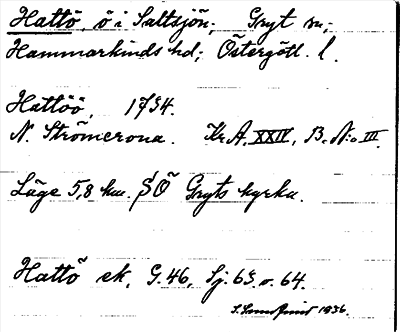 Hattö, ö i Saltsjön; Gryt sn;
Hammarkinds hd; Östergötl. l.
Hattöö, 1734.
N. Strömcrona. Kr A. XXIV, B. No III.
Läge 5,8 km. SÖ Gryts kyrka.
Hattö ek, G. 46, Sj. 63 o. 64.
1936.